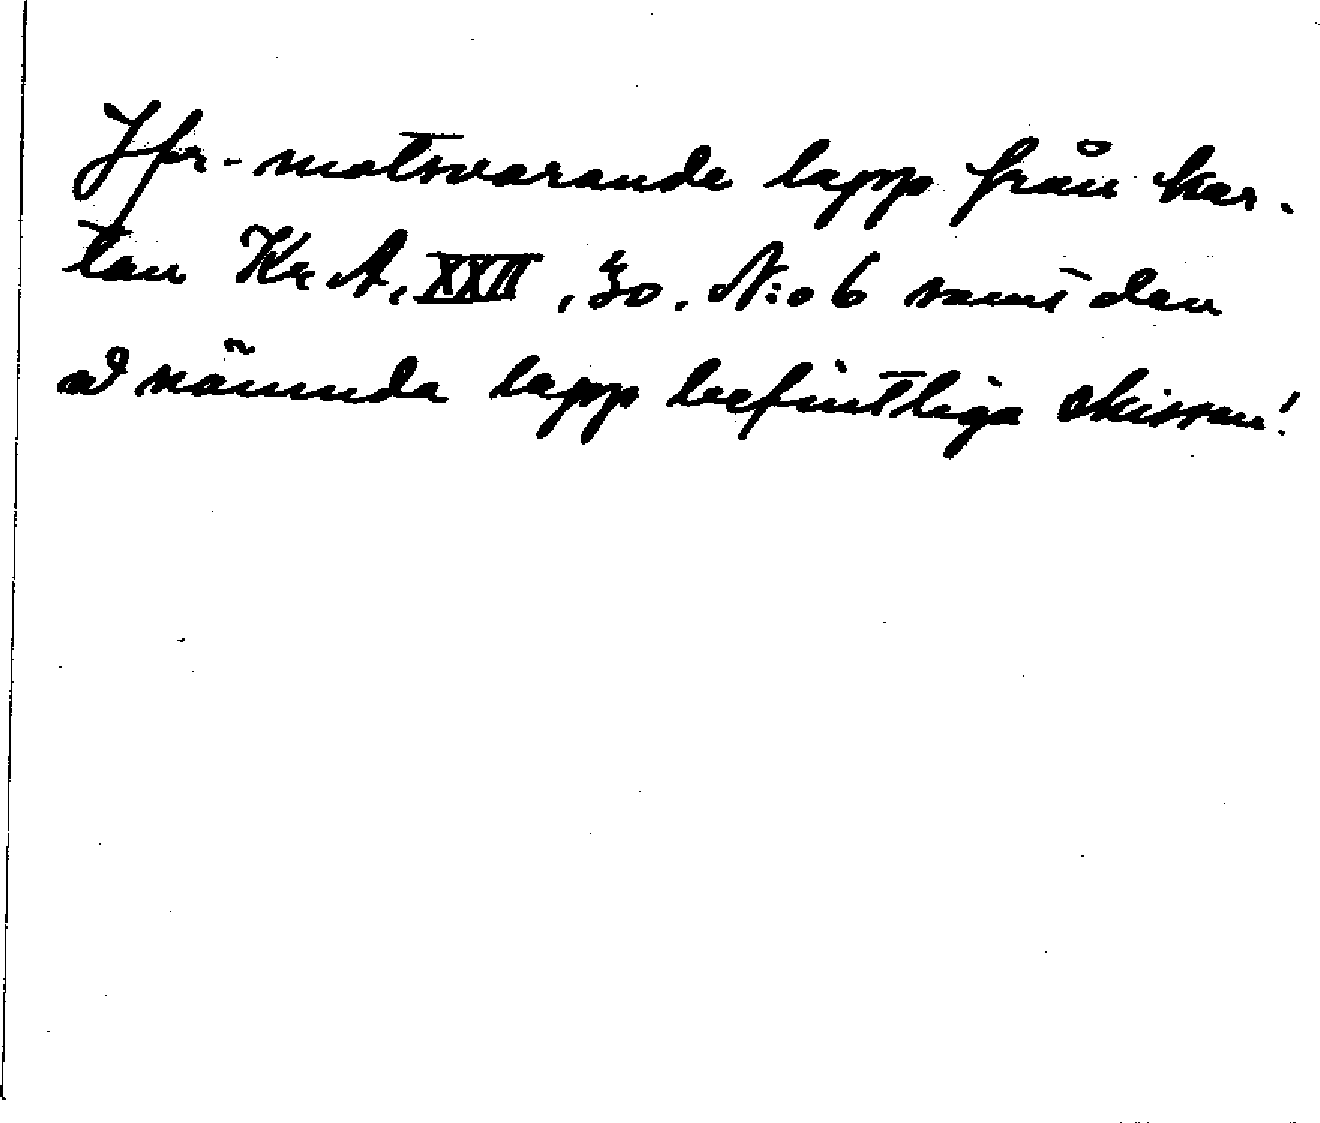 Jfr. motsvarande lapp från kar-
tan Kr A, XXII, 30. N:o 6 samt den
å nämnda lapp befintliga skissen!